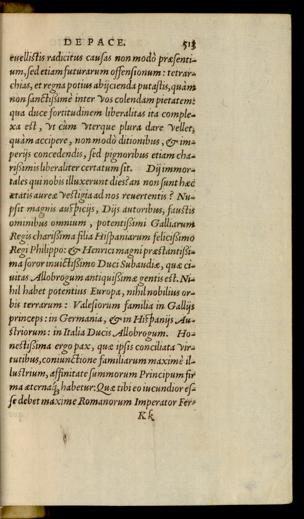 DE PACE. 513
euellistis radicitus causas non modò præsenti-
um, sed etiam futurarum offensionum: tetrar-
chias, et regna potius abijcienda putastis, quàm
non sanctissimè inter vos colendam pietatem:
qua duce fortitudinem liberalitas ita comple-
xa est, vt cùm vterque plura dare vellet,
quàm accipere, non modò ditionibus, & im-
perijs concedendis, sed pignoribus etiam cha-
rissimis liberaliter certatum sit. Dij immor-
tales qui nobis illuxerunt dies? an non sunt hæc
ætatis aureæ vestigia ad nos reuertentis? Nu-
psit magnis auspicijs, Dijs autoribus, faustis
ominibus omnium, potentissimi Galliarum
Regis charissima filia Hispaniarum felicissimo
Regi Philippo: & Henrici magni præstantissi-
ma soror inuictissimo Duci Subaudiæ, quæ ci-
uitas Allobrogum antiquissimæ gentis est. Ni-
hil habet potentius Europa, nihil nobilius or-
bis terrarum: Valesiorum familia in Gallijs
princeps: in Germania, & in Hispanijs Au-
striorum: in Italia Ducis Allobrogum. Ho-
nestissima ergo pax, quæ ipsis conciliata vir-
tutibus, coniunctione familiarum maximè il-
lustrium, affinitate summorum Principum fir
ma æternaq́, habetur: Quæ tibi eo iucundior es-
se debet maxime Romanorum Imperator Fer-
Kk